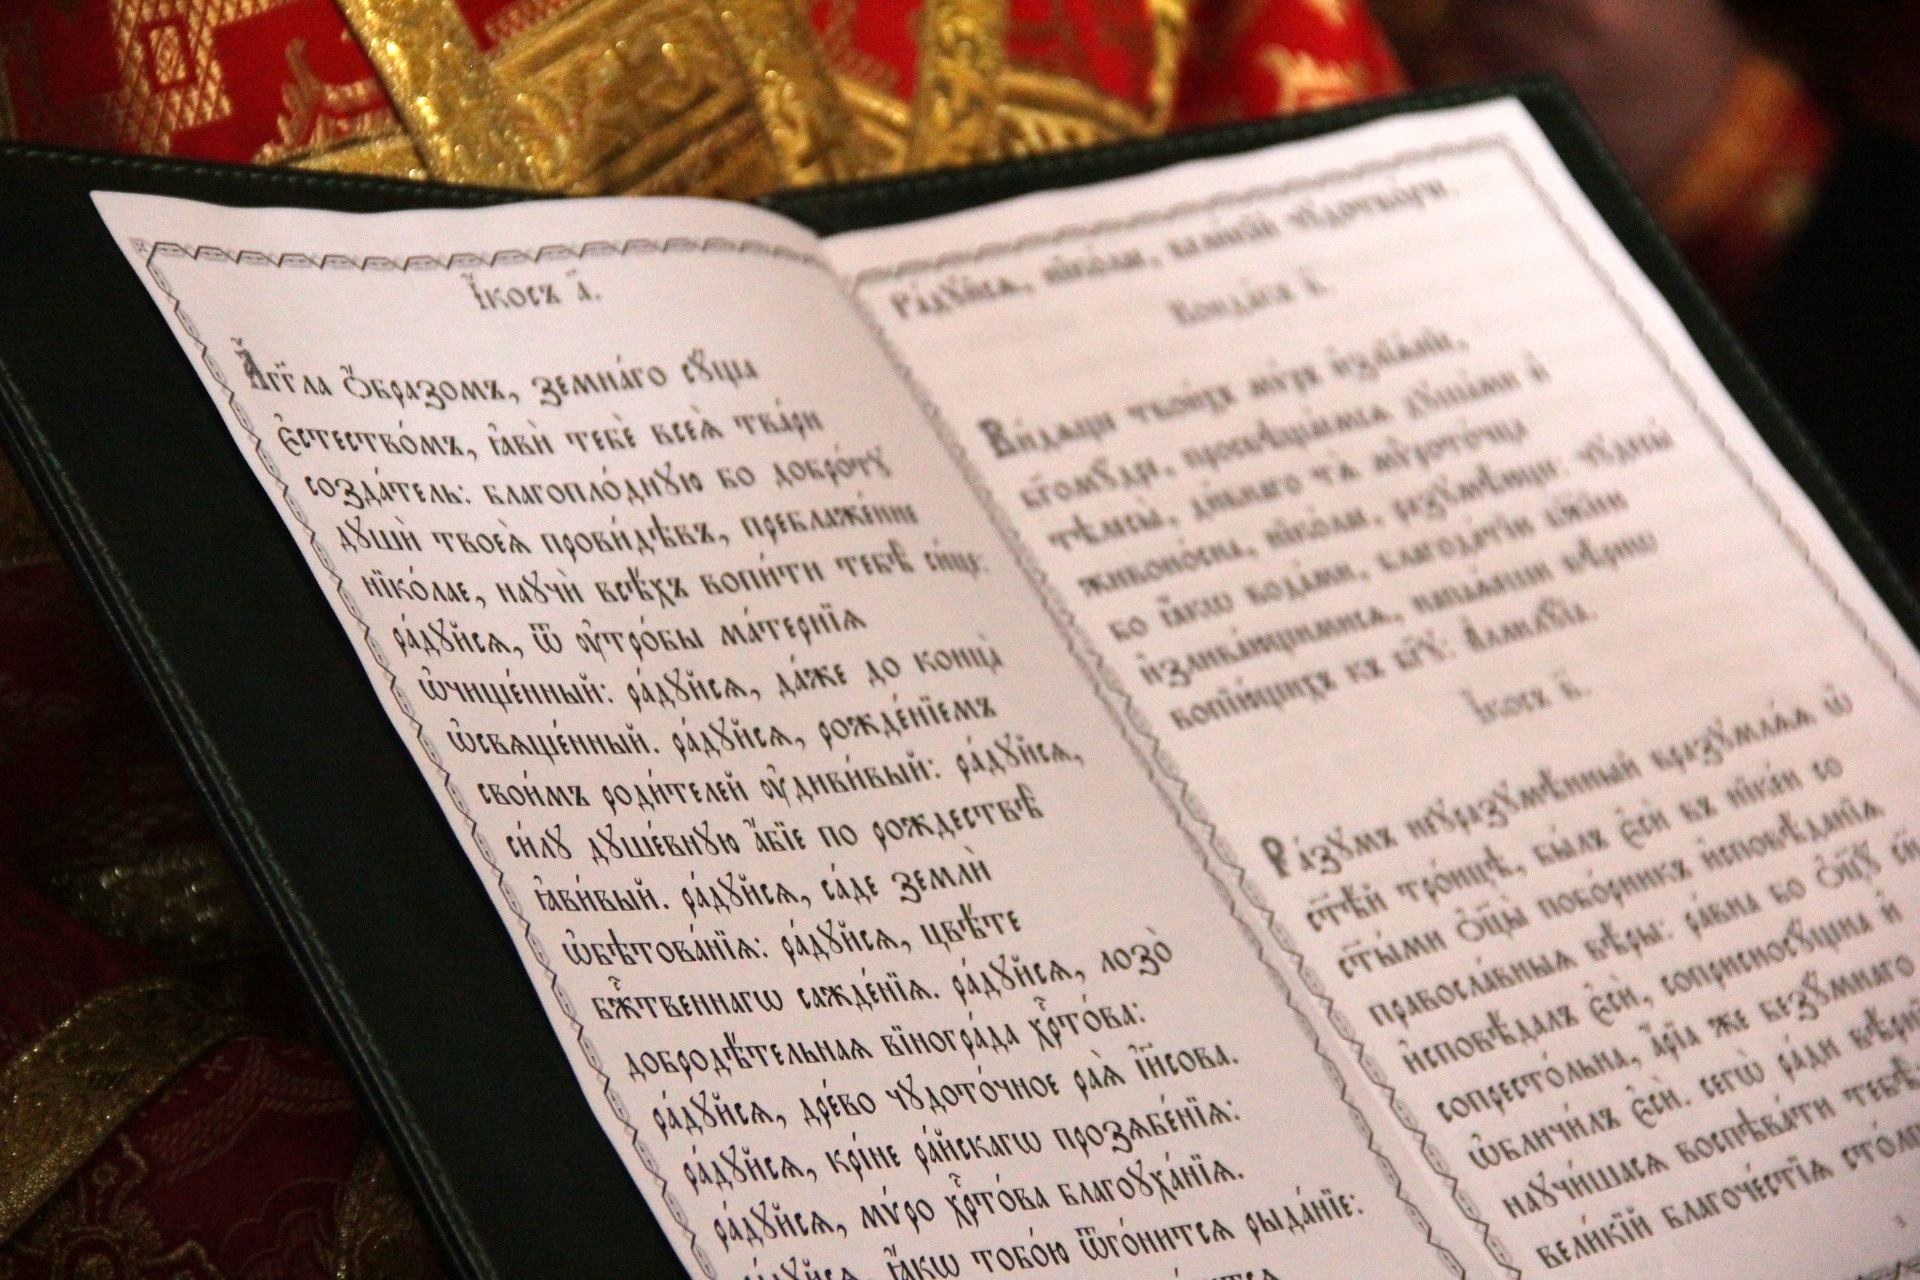 І҆́косъ а҃.
А҆́гг҃ла ѻ҆́бразомъ, земна́гѡ сꙋ́ща
є҆стество́мъ, ꙗ҆вѝ тебѐ всеѧ̀ тва́ри
созда́тель: благопло́днꙋю бо добро́тꙋ
дꙋшѝ твоеѧ̀ прови́дѣвъ, преблаже́нне
нїко́лае, наꙋчѝ всѣ́хъ вопи́ти тебѣ̀ си́це:
ра́дꙋйсѧ, ѿ ᲂу҆тро́бы ма́тернїѧ
ѡ҆чище́нный: ра́дꙋйсѧ, да́же до конца̀
ѡ҆свѧще́нный. ра́дꙋйсѧ, рожде́нїемъ
свои́мъ роди́телей ᲂу҆диви́вый: ра́дꙋйсѧ,
си́лꙋ дꙋше́внꙋю а҆́бїе по рождествѣ̀
ꙗ҆ви́вый. ра́дꙋйсѧ, са́де землѝ
ѡ҆бѣтова́нїѧ: ра́дꙋйсѧ, цвѣ́те
бж҃твеннагѡ сажде́нїѧ. ра́дꙋйсѧ, лозо̀
добродѣ́тельнаѧ вїногра́да хрⷭ҇то́ва:
ра́дꙋйсѧ, дре́во чꙋдото́чное раѧ̀ і҆и҃сова.
ра́дꙋйсѧ, крі́не ра́йскагѡ прозѧбе́нїѧ:
ра́дꙋйсѧ, мѵ́ро хрⷭ҇то́ва благоꙋха́нїѧ.
ра́дꙋйсѧ, ꙗ҆́кѡ тобо́ю ѿго́нитсѧ рыда́нїе:
ра́дꙋйсѧ, нїко́лае, вели́кїй чꙋдотво́рче.
Конда́къ в҃.
Ви́дѧще твои́хъ мѵ́ръ и҆злїѧ́нїе,
бг҃омꙋ́дре, просвѣща́емсѧ дꙋша́ми и҆
тѣлесы̀, ди́внаго тѧ̀ мѵрото́чца
живоно́сна, нїко́лае, разꙋмѣ́юще: чꙋдесы́
бо ꙗ҆́кѡ вода́ми, благода́тїю бж҃їею
и҆злива́ющимисѧ, напаѧ́еши вѣ́рнѡ
вопїю́щихъ къ бг҃ꙋ: А҆ллилꙋ́їа.
І҆́косъ в҃.
Ра́зꙋмъ неꙋразꙋмѣ́нный вразꙋмлѧ́ѧ ѡ҆
ст҃ѣ́й трⷪ҇цѣ, бы́лъ є҆сѝ въ нїке́и со
ст҃ы́ми ѻ҆тцы̀ побо́рникъ и҆сповѣ́данїѧ
правосла́вныѧ вѣ́ры: ра́вна бо ѻ҆ц҃ꙋ̀
и҆сповѣ́далъ є҆сѝ, соприсносꙋ́щна и҆
сопресто́льна, а҆́рїа же безꙋ́мнаго
ѡ҆бличи́лъ є҆сѝ. сегѡ̀ ра́ди
наꙋчи́шасѧ воспѣва́ти
вели́кїй благоче́стїѧ